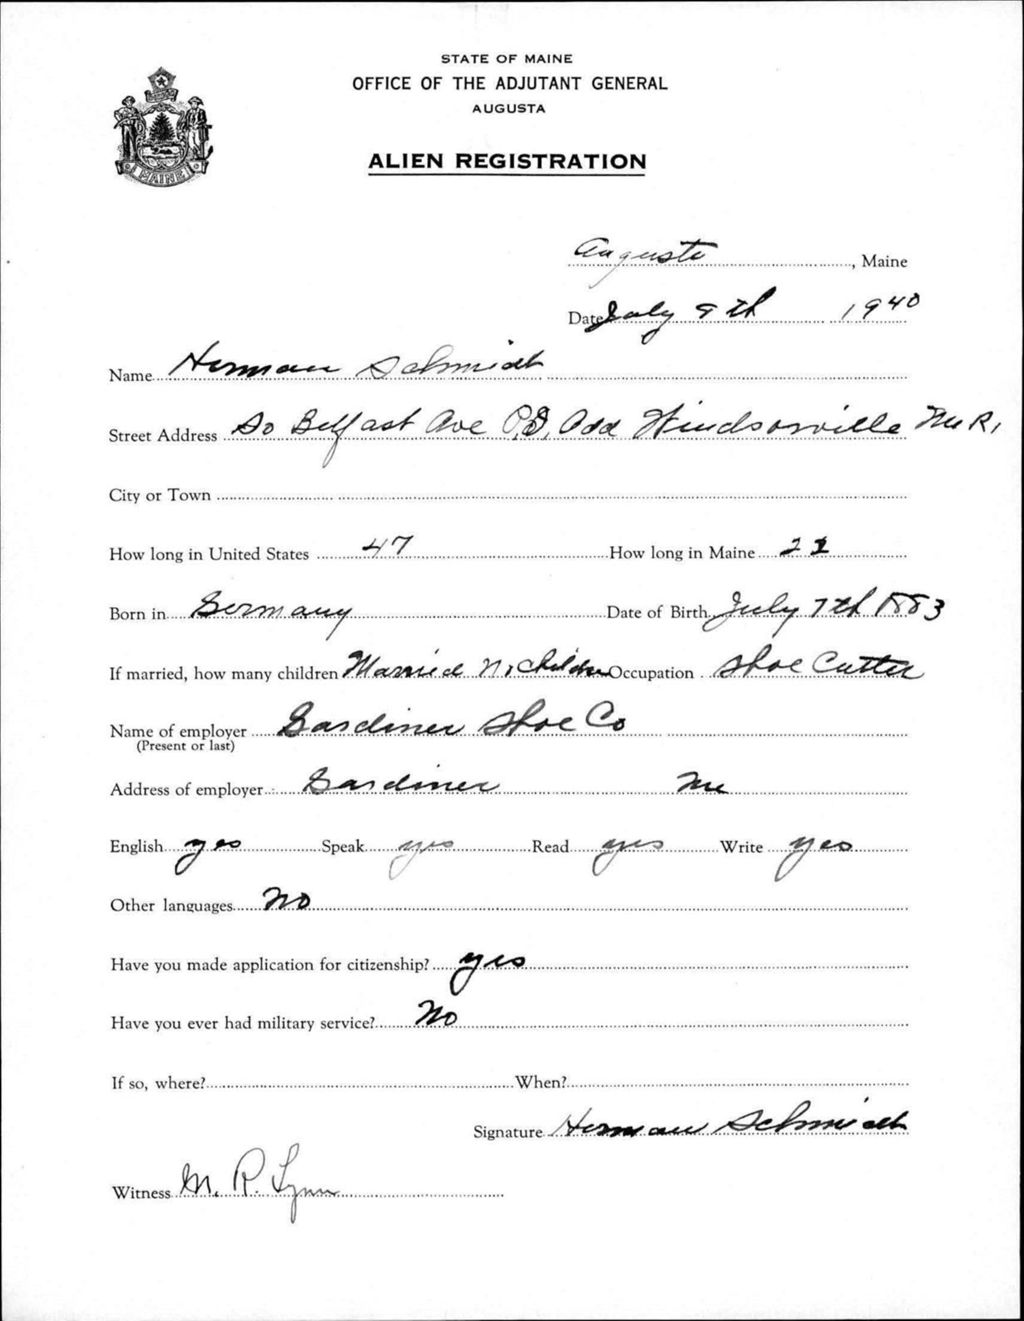 STATE OF MAINE
OFFICE OF THE ADJUTANT GENERAL
AUGUSTA
MAINE
ALIEN REGISTRATION
Augusta, Maine
Date July 9th 1940
Name Herman Schmidt
Street Address So Belfast Ave P.O. Add Windsorville Me R,
City or Town
How long in United States 47 How long in Maine
Born in Germany Date of Birth July 7th 1883
If married, how many children Married No children Occupation Shoe Cutter
Name of employer Gardiner Shoe Co
(Present or last)
Address of employer Gardiner Me
English yes Speak yes Read yes Write yes
Other languages No
Have you made application for citizenship? yes
Have you ever had military service? No
If so, where? When?
Signature Herman Schmidt
Witness M. R. Lynn